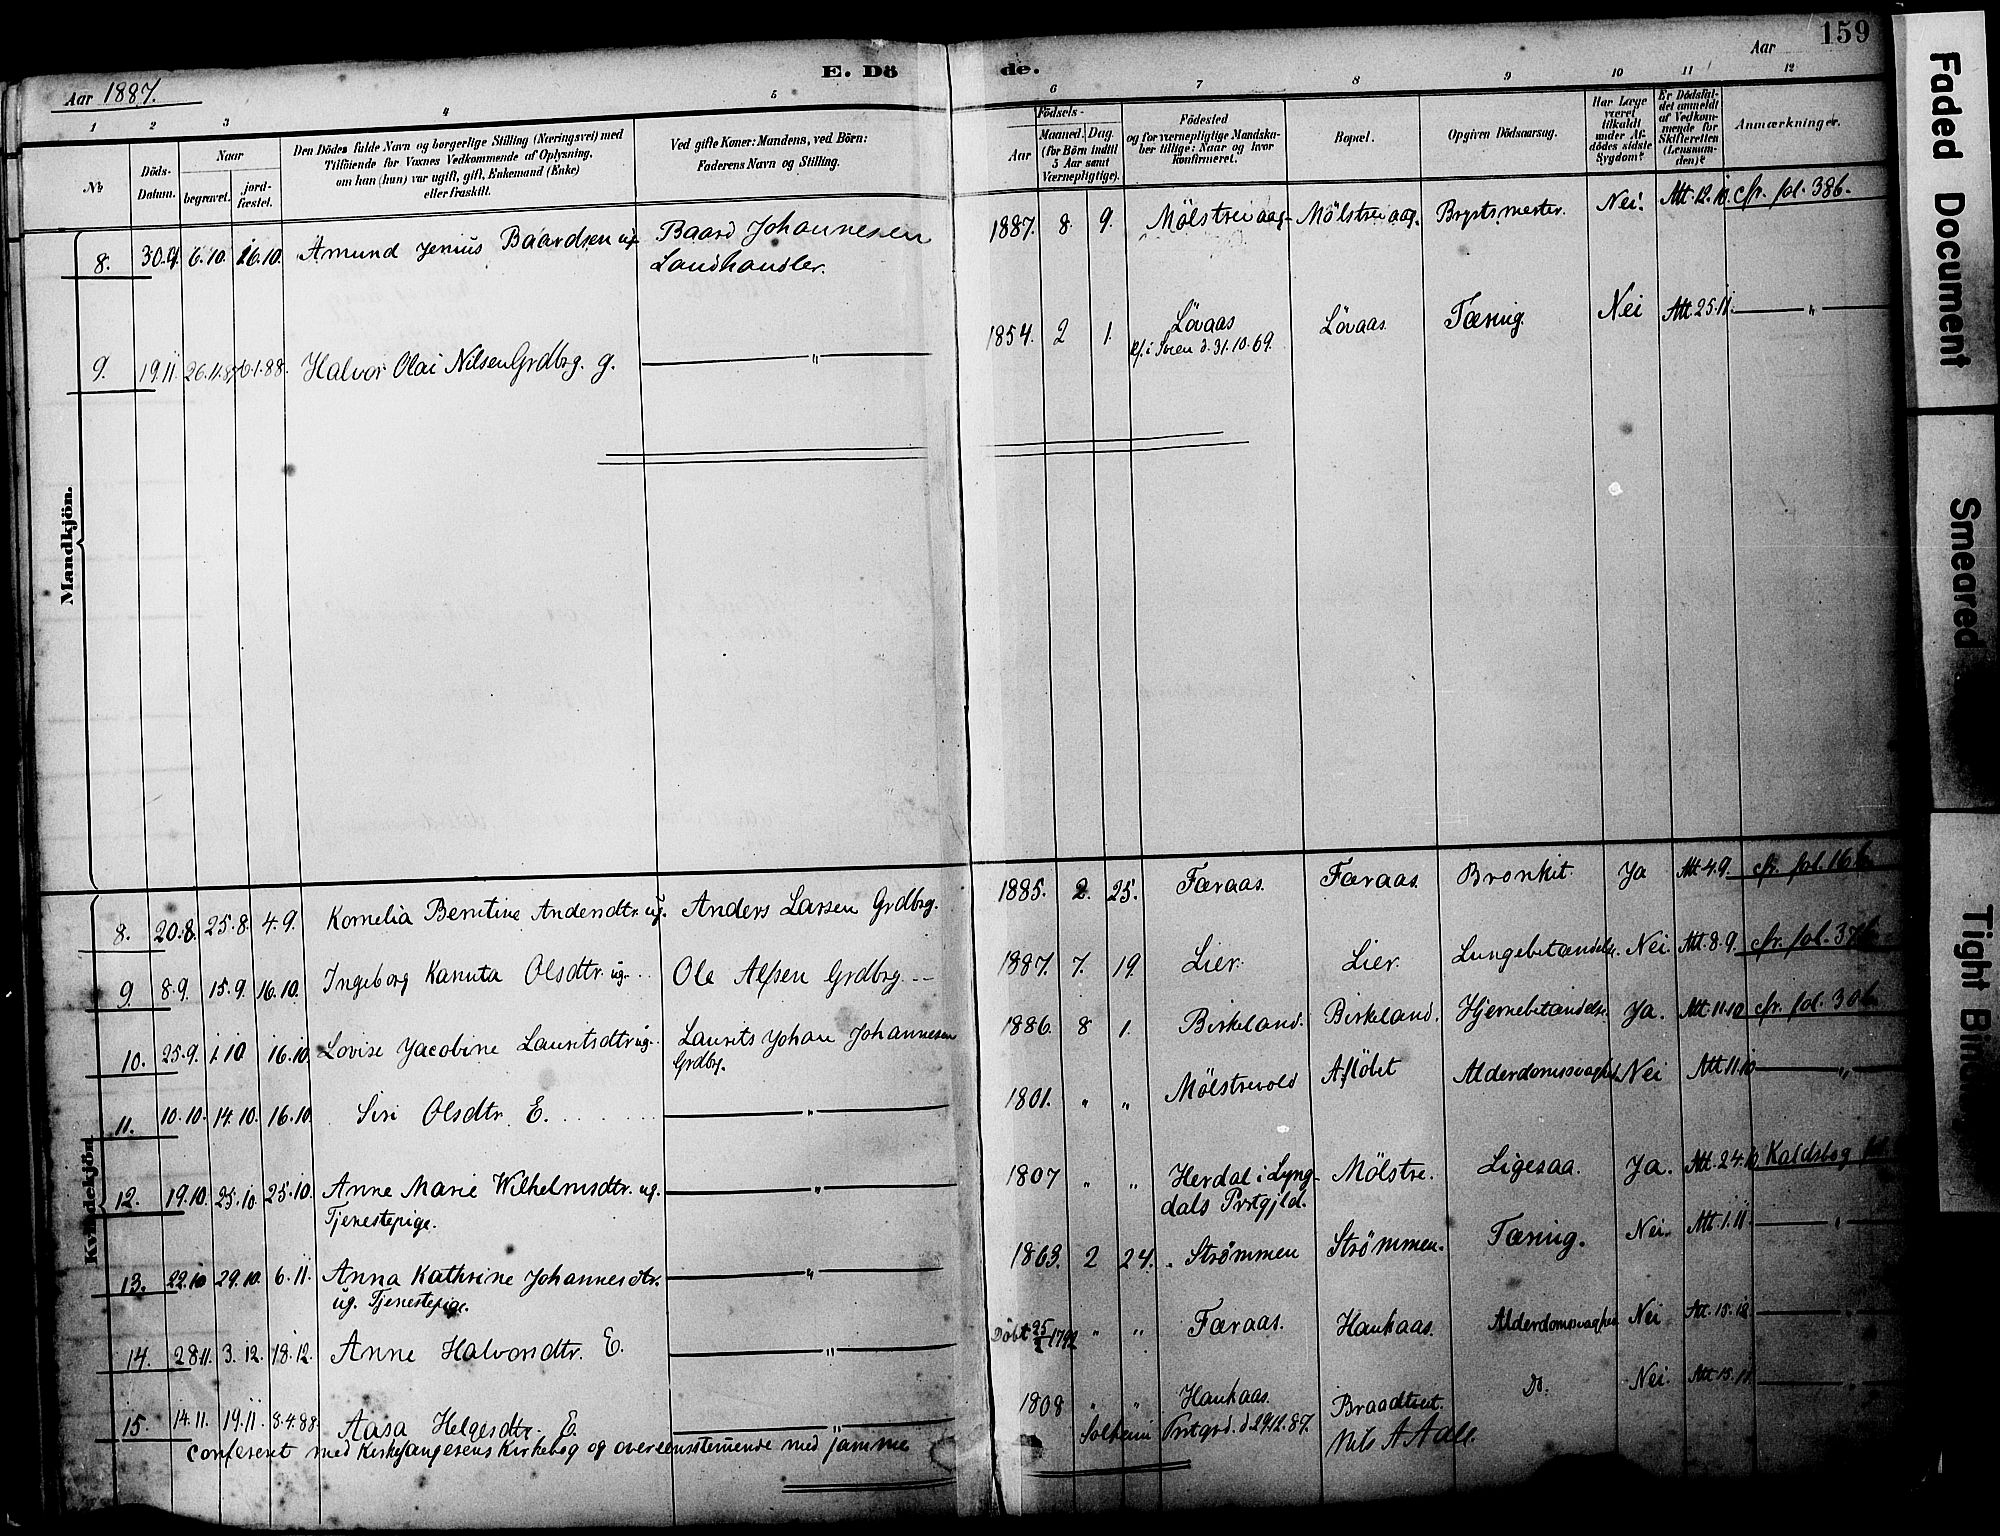 159
Aar 1887.
E. Döde.
Aar
1 2 3 4 5 6 7 8 9 10 11 12
No
Döds-Datum.
Naar
begravet.
jordfæstet.
Den Dödes fulde Navn og borgerlige Stilling (Næringsvei) med
Tilföiende for Voxnes Vedkommende af Oplysning,
om han (hun) var ugift, gift, Enkemand (Enke)
eller fraskilt.
Ved gifte Koner: Mandens, ved Börn:
Faderens Navn og Stilling.
Födsels-
Aar
Maaned. Dag.
(for Börn indtil
5 Aar samt
Værnepligtige).
Födested
og for værnepligtige Mandskaber tillige: Naar og hvor
konfirmeret.
Bopæl.
Opgiven Dödsaarsag.
Har Læge
været
tilkaldt
under Afdödes sidste
Sygdom?
Er Dödsfaldet anmeldt
af Vedkommende for
Skifteretten
(Lensmanden)?
Anmærkninger.
Mandkjön.
8. 30.9. 6.10. 16.10. Amund Jenius Baardsen ug. Baard Johannesen 1887. 8. 9. Mölstrevaag Mölstrevaag. Brystsmerter. Nei. Att. 12.10. cfr. fol. 38b.
Landhandler.
9. 19.11. 26.11.87 6.1.88. Halvor Olai Nilsen Grdbrg. g. — " — 1854. 2 1. Lövaas Lövaas. Tæring. Nei Att 25.11. — " —
kf. i Svien d. 31.10.69.
Kvindekjön
8. 20.8. 25.8. 4.9. Kornelia Berntine Andersdtr. ug. Anders Larsen Grdbrg. 1885. 2. 25. Færaas. Færaas. Bronkit. Ja Att 4.9. cfr. fol. 16b
9 8.9. 15.9. 16.10. Ingeborg Kanuta Olsdtr. ug. Ole Alfsen Grdbrg. 1887. 7. 19. Lier. Lier. Lungebetændelse. Nei. Att. 8.9. cfr. fol. 37b
10. 25.9. 1.10 16.10 Lovise Jacobine Lauritsdtr ug. Laurits Johan Johannesen 1886. 8 1. Birkeland. Birkeland. Hjernebetændelse. Ja. Att. 11.10 cfr. fol. 30b
Grdbrg.
11. 10.10. 14.10. 16.10. Siri Olsdtr. E. — " — 1801. " " Mölstrevold Aflöbet Alderdomssvaghed Nei Att 11.10 — " —
12. 19.10. 25.10. 25.10. Anne Marie Wilhelmsdtr. ug. — " — 1807 " " Herdal i Lyngdals Prstgjld. Mölstre. Ligesaa. Ja. Att. 24.10
Tjenestepige.
13. 22.10 29.10. 6.11. Anna Kathrine Johannesdtr. — " — 1863. 2 24. Strömmen Strömmen. Tæring. Nei. Att. 1.11. — " —
ug. Tjenestepige.
14. 28.11. 3.12. 18.12. Anne Halvorsdtr. E. — " — Döbt 25/ 1792 " " Færaas. Haukaas. Alderdomssvaghed Nei Att. 15.12. — " —
15. 14.11. 19.11. 3.4.88. Aasa Helgesdtr. E. — " — 1808 " " Haukaas. Braadtvet. Do. Nei. Att 15.11 — " —
Confereret med Kirkesangerens Kirkebog og overensstemmende med samme Solheim Prstgrd. d. 29.12.87. Nils A Aall.
Faded Document
Smeared
Tight Bind